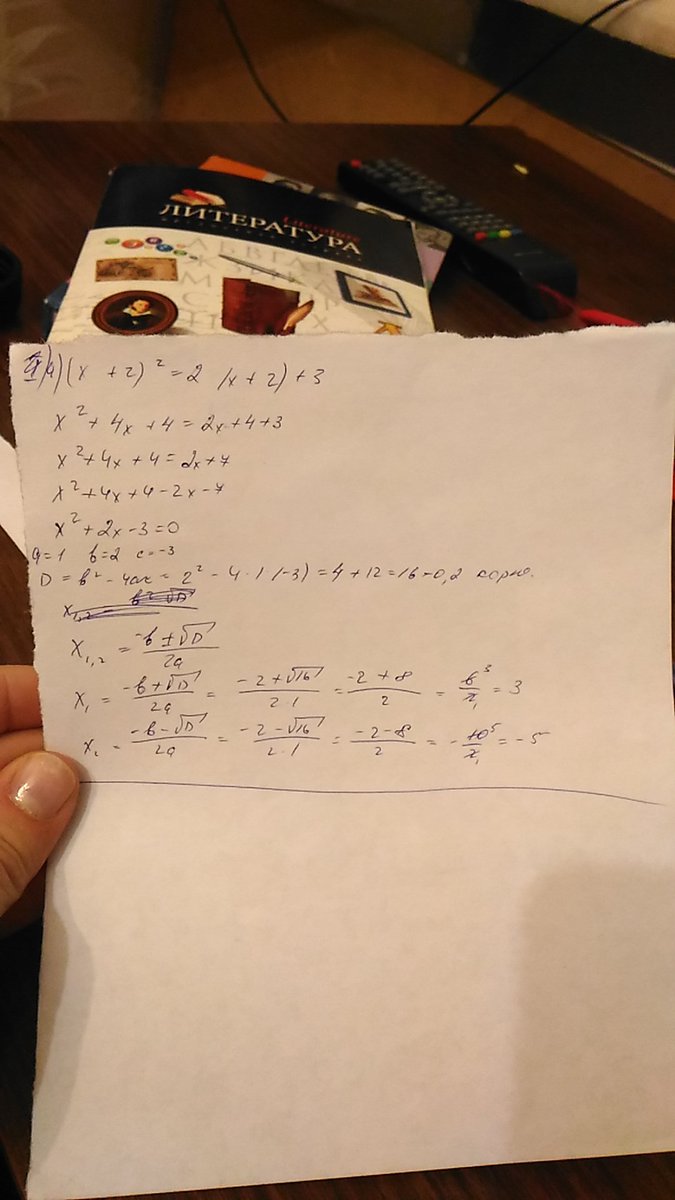 Literature
ЛИТЕРАТУРА
а) (x + 2)² = 2 (x + 2) + 3
x² + 4x + 4 = 2x + 4 + 3
x² + 4x + 4 = 2x + 7
x² + 4x + 4 - 2x - 7
x² + 2x - 3 = 0
a = 1 b = 2 c = -3
D = b² - 4ac = 2² - 4 · 1 (-3) = 4 + 12 = 16 > 0, 2 корня.
x₁,₂ = (-b ± √D) / 2a
x₁ = (-b + √D) / 2a = (-2 + √16) / 2·1 = (-2 + 8) / 2 = 6³ / 2₁ = 3
x₂ = (-b - √D) / 2a = (-2 - √16) / 2·1 = (-2 - 8) / 2 = - 10⁵ / 2₁ = -5